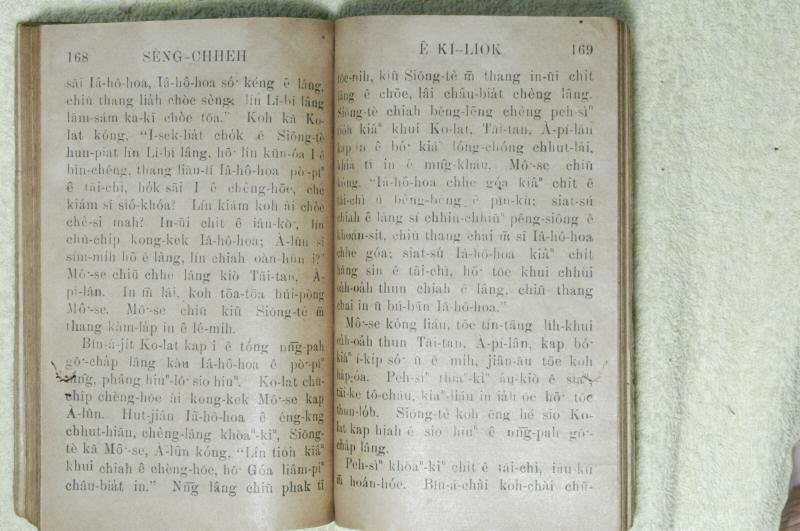 168 SÈNG-CHHEH
sāi Iâ-hô-hoa, Iâ-hô-hoa só͘ kéng ê lâng,
chiū thang lia̍h chòe sèng; lín Lī-bī lâng
lām-sám ka-kī chòe tōa.” Koh kā Ko-
lat kóng, “I-sek-lia̍t cho̍k ê Siōng-tè
hun-pia̍t lín Lī-bī lâng, hō͘ lín kūn-óa I ê
bīn-chêng, thang liāu-lí Iâ-hô-hoa pò͘-pîⁿ
ê tāi-chì, ho̍k-sāi I ê chèng-hōe, che
kiám sī sió-khóa? Lín kiám koh ài chòe
chè-si mah? In-ūi chit ê iân-kò͘, lín
chū-chi̍p kong-kek Iâ-hô-hoa; À-lûn sī
sím-mih hō ê lâng, lín chiah oàn-hūn i?”
Mô͘-se chiū chhe lâng kiò Tāi-tan, À-
pí-lân. In m̄ lâi, koh tōa-tōa húi-pòng
Mô͘-se. Mô͘-se chiū kiû Siōng-tè m̄
thang kàm-la̍p in ê lé-mi̍h.
Bîn-á-ji̍t Ko-lat kap i ê tóng nn̄g-pah
gō͘-cha̍p lâng kàu Iâ-hô-hoa ê pò͘-pîⁿ
thâng, phâng hiuⁿ-lô͘ sio hiuⁿ. Ko-lat chū-
chi̍p chèng-hōe ài kong-kek Mô͘-se kap
À-lûn. Hut-jiân Iâ-hô-hoa ê êng-kng
chhut-hiān, chèng-lâng khòaⁿ-kìⁿ, Siōng-
tè kā Mô͘-se, À-lûn kóng, “Lín tio̍h kiâⁿ
khui chiah ê chèng-hōe, hō͘ Góa liâm-piⁿ
châu-bia̍t in.” Nn̄g lâng chiū phak tī
Ê KÌ-LIO̍K 169
tôe-nih, kiû Siōng-tè m̄ thang in-ūi chit
lâng ê chōe, lâi châu-bia̍t chèng lâng.
Siōng-tè chiah bēng-lēng chèng peh-sìⁿ
tio̍h kiâⁿ khui Ko-lat, Tāi-tan, À-pí-lân
kap in ê bó͘ kiáⁿ lóng-chóng chhut-lâi,
khiā tī in ê mn̂g-kháu. Mô͘-se chiū
kóng, “Iâ-hô-hoa chhe góa kiâⁿ chit ê
tāi-chì ū bêng-bêng ê pîn-kù; siat-sú
chiah ê lâng sí chhin-chhiūⁿ pêng-siông ê
khoán-sit, chiū thang chai m̄ sī Iâ-hô-hoa
chhe góa; siat-sú Iâ-hô-hoa kiâⁿ chi̍t
hāng sin ê tāi-chì, hō͘ tôe khui chhùi
oa̍h-oa̍h thun chiah ê lâng, chiū thang
chai in ū bú-bān Iâ-hô-hoa.”
Mô͘-se kóng liáu, tōe tín-tāng li̍h-khui
oa̍h-oa̍h thun Tāi-tan, À-pí-lân, kap bó͘
kiáⁿ í-ki̍p só͘ ū ê mi̍h, jiân-āu tōe koh
ha̍p-óa. Peh-sìⁿ thiaⁿ-kìⁿ áu-kiò ê siaⁿ,
tāi-ke tô-cháu, kiaⁿ-liáu in iā̍h oē hō͘ tôe
thun-lo̍h. Siōng-tè koh ēng hé sio Ko-
lat kap hiah ê sio hiuⁿ ê nn̄g-pah gō͘-
cha̍p lâng.
Peh-sìⁿ khòaⁿ-kìⁿ chit ê tāi-chì, iáu-kú
m̄ hoán-hóe. Bîn-á-chài koh-chài chū-